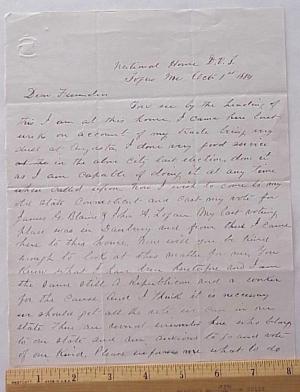 National Home D.V.S.
Togus Me Oct 1st 1884
Dear Friend
You see by the heading of
this I am at this home. I came here last
week on account of my trade being very
dull at Augusta, I done very good service
in the above city last election, don it
as I am capable of doing it at any time
when called upon. Now I wish to come to my
old State Connecticut and cast my vote for
James G. Blaine & John A. Logan. My last voting
place was in Danbury and from there I came
here to this house. Now will you be kind
enough to look at this matter for me, You
know what I have been heretofore and I am
the same still A Republican and a worker
for the cause And I think it is necessary
we should get all the votes we can in our
state There are several here who belong
to our state and are anxious to go and vote
of our kind. Please inform me what to do